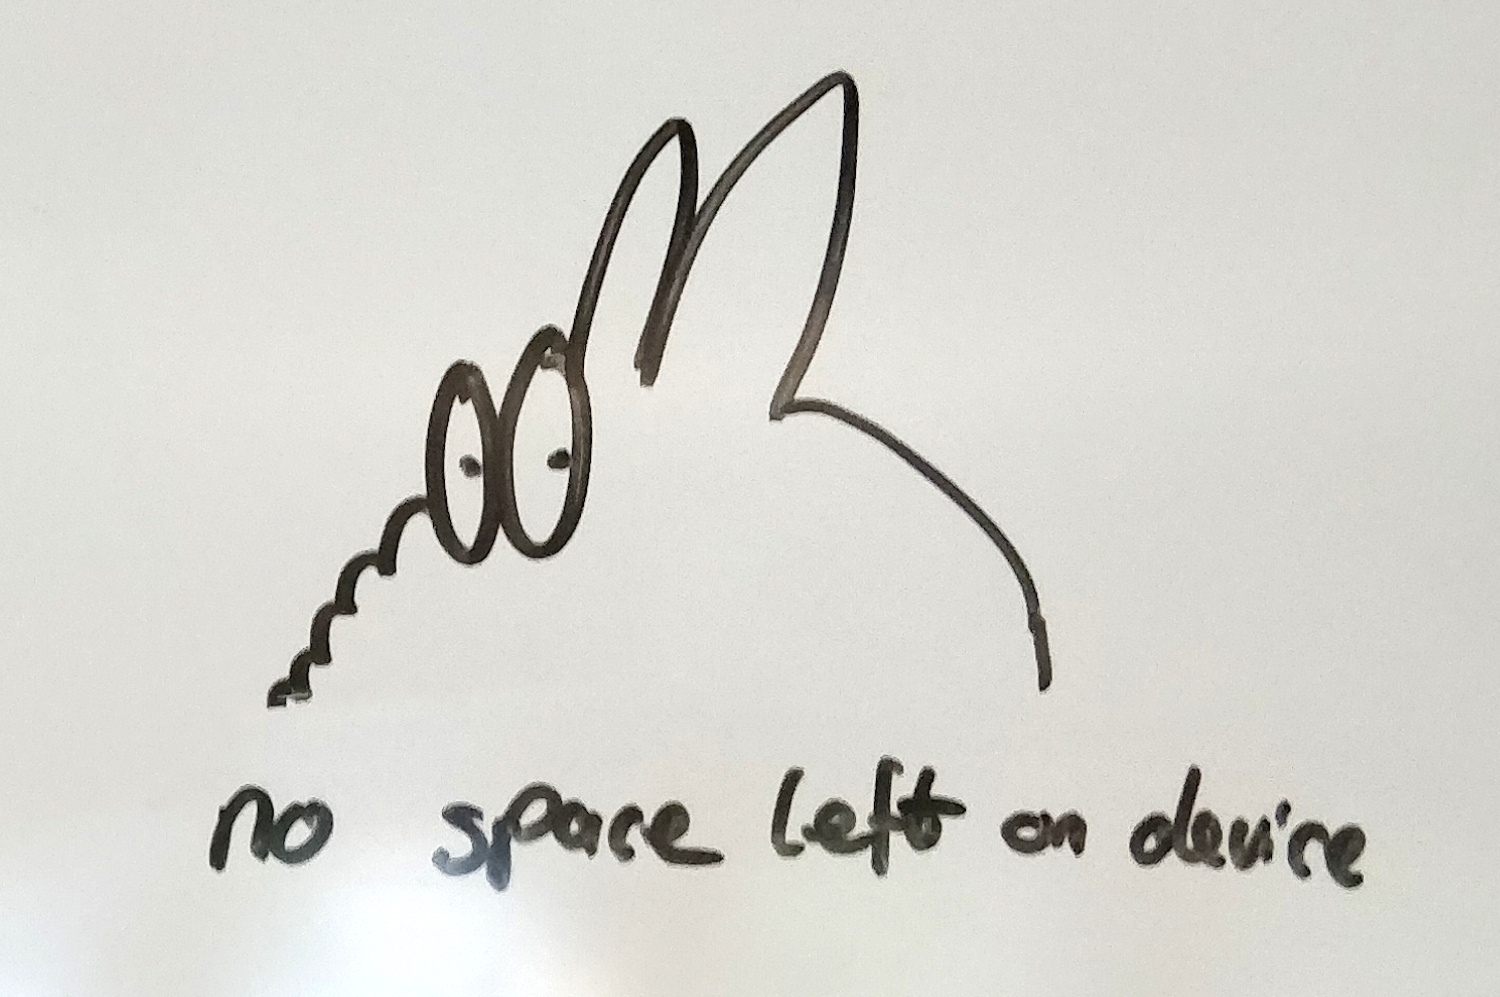 no space left on device